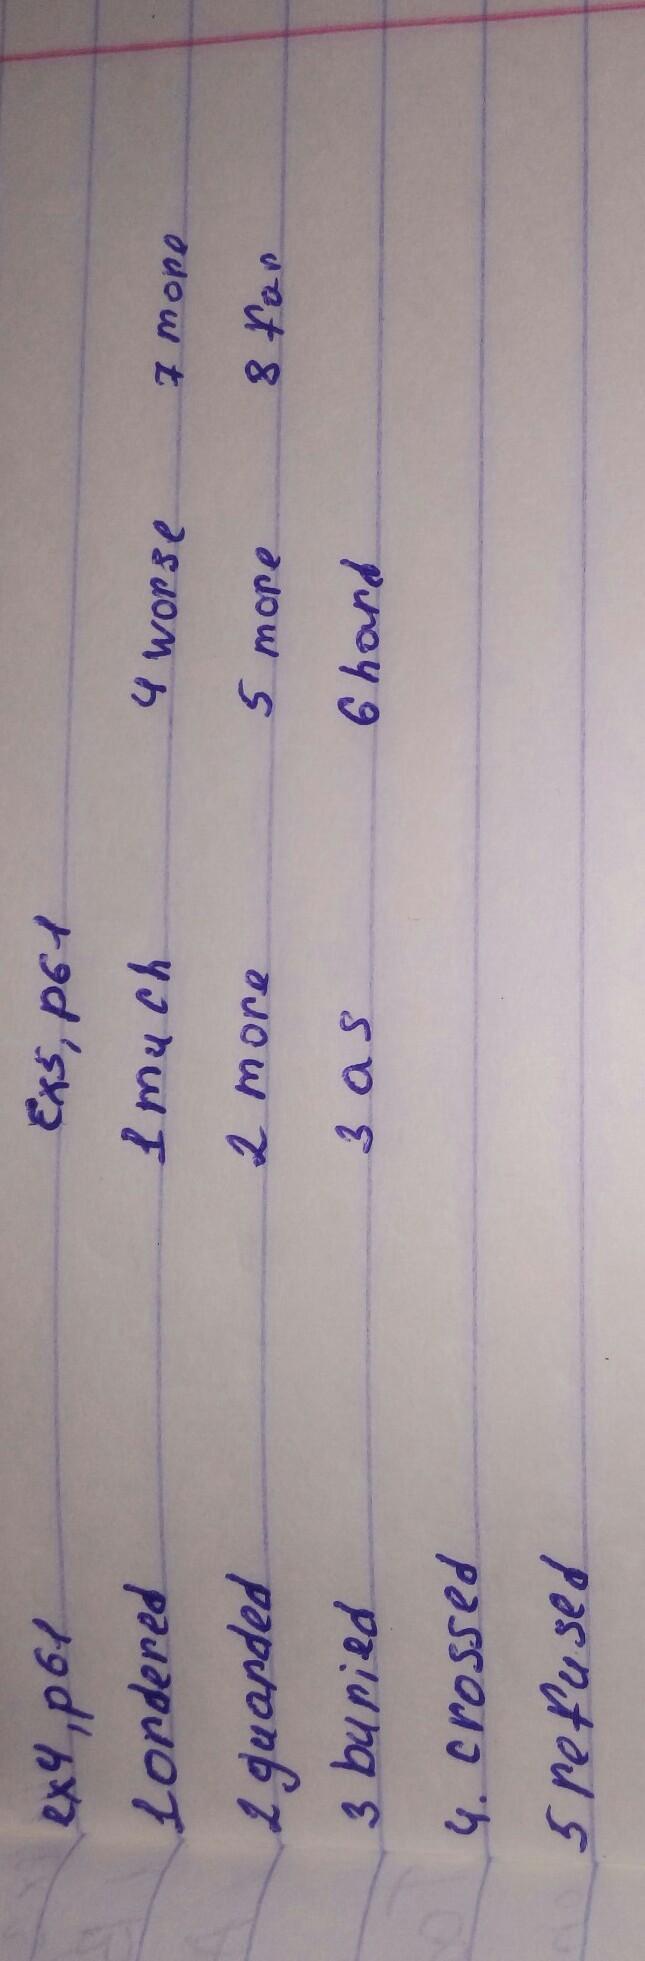 ex4, p61 Ex5, p61
1 ordered 1 much 4 worse 7 more
2 guarded 2 more 5 more 8 far
3 buried 3 as 6 hard
4. crossed
5 refused